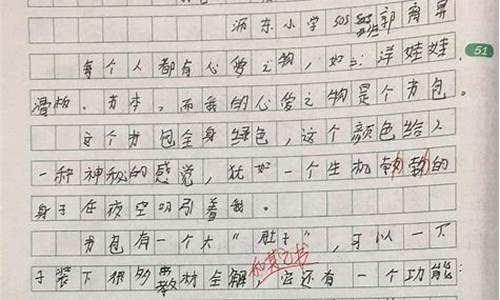 沥东小学505班郭育昇
51
每个人都有心爱之物，如：洋娃娃、
滑板、书本，而我的心爱之物是个书包。
这个书包全身绿色，这个颜色给人
一种神秘的感觉，犹如一个生机勃勃的
身子在夜空吸引着我。
书包有一个大“肚子”，可以一下
子装下很多教材全解和其它书
它还有一个功能